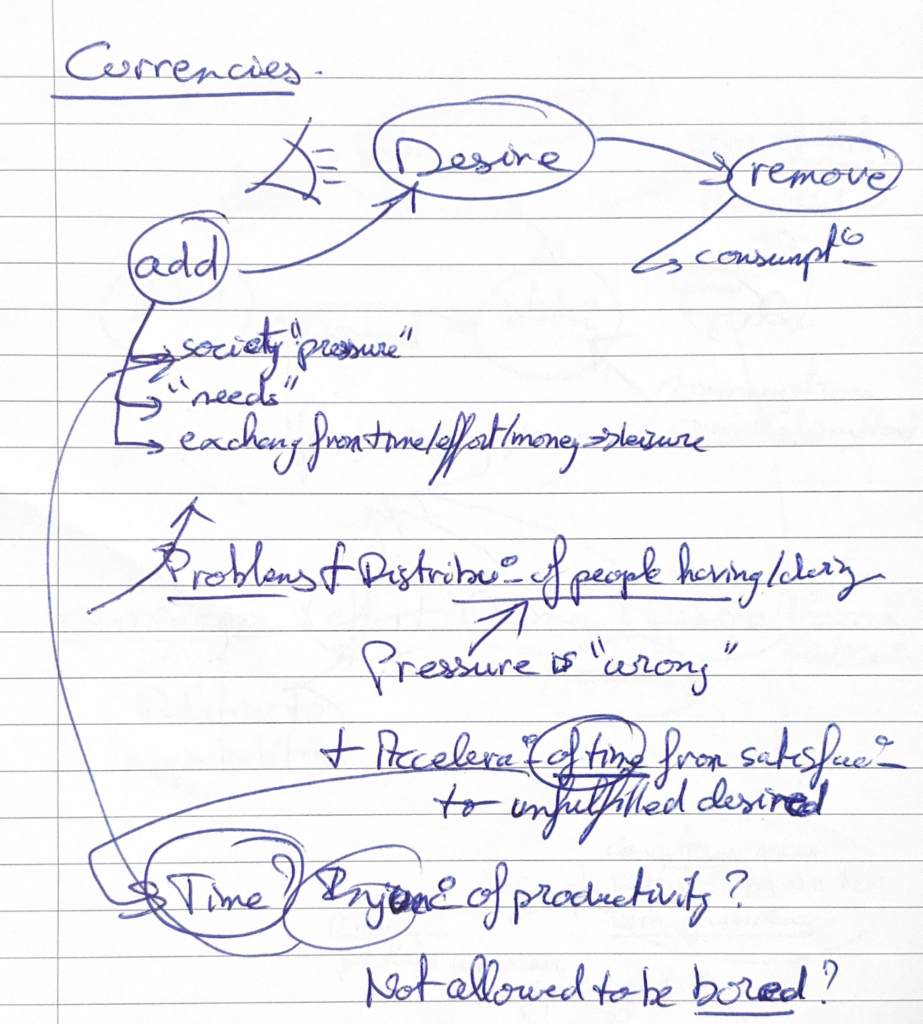 Currencies.
Desire
remove
add
consumpt°
society "pressure"
"needs"
exchang from time/effort/money => leisure
Problems + Distribu° of people having/
Pressure is "wrong"
+ Accelera° of time from satisfac°
to unfulfilled desired
Time? of productivity?
Not allowed to be bored?